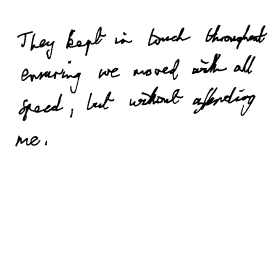 They kept in touch throughout
ensuring we moved with all
speed, but without offending
me.